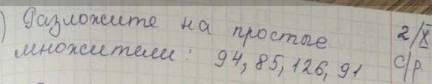 ) Разложите на простые
множители: 94, 85, 126, 91
2/X
с/р